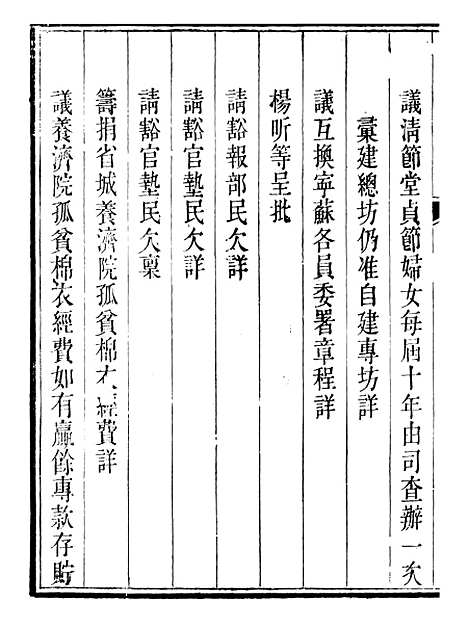 議清節堂貞節婦女每屆十年由司查辦一次
彙建總坊仍准自建專坊詳
議互換寧蘇各員委署章程詳
楊昕等呈批
請豁報部民欠詳
請豁官墊民欠詳
請豁官墊民欠稟
籌捐省城養濟院孤貧棉衣經費詳
議養濟院孤貧棉衣經費如有贏餘專款存貯